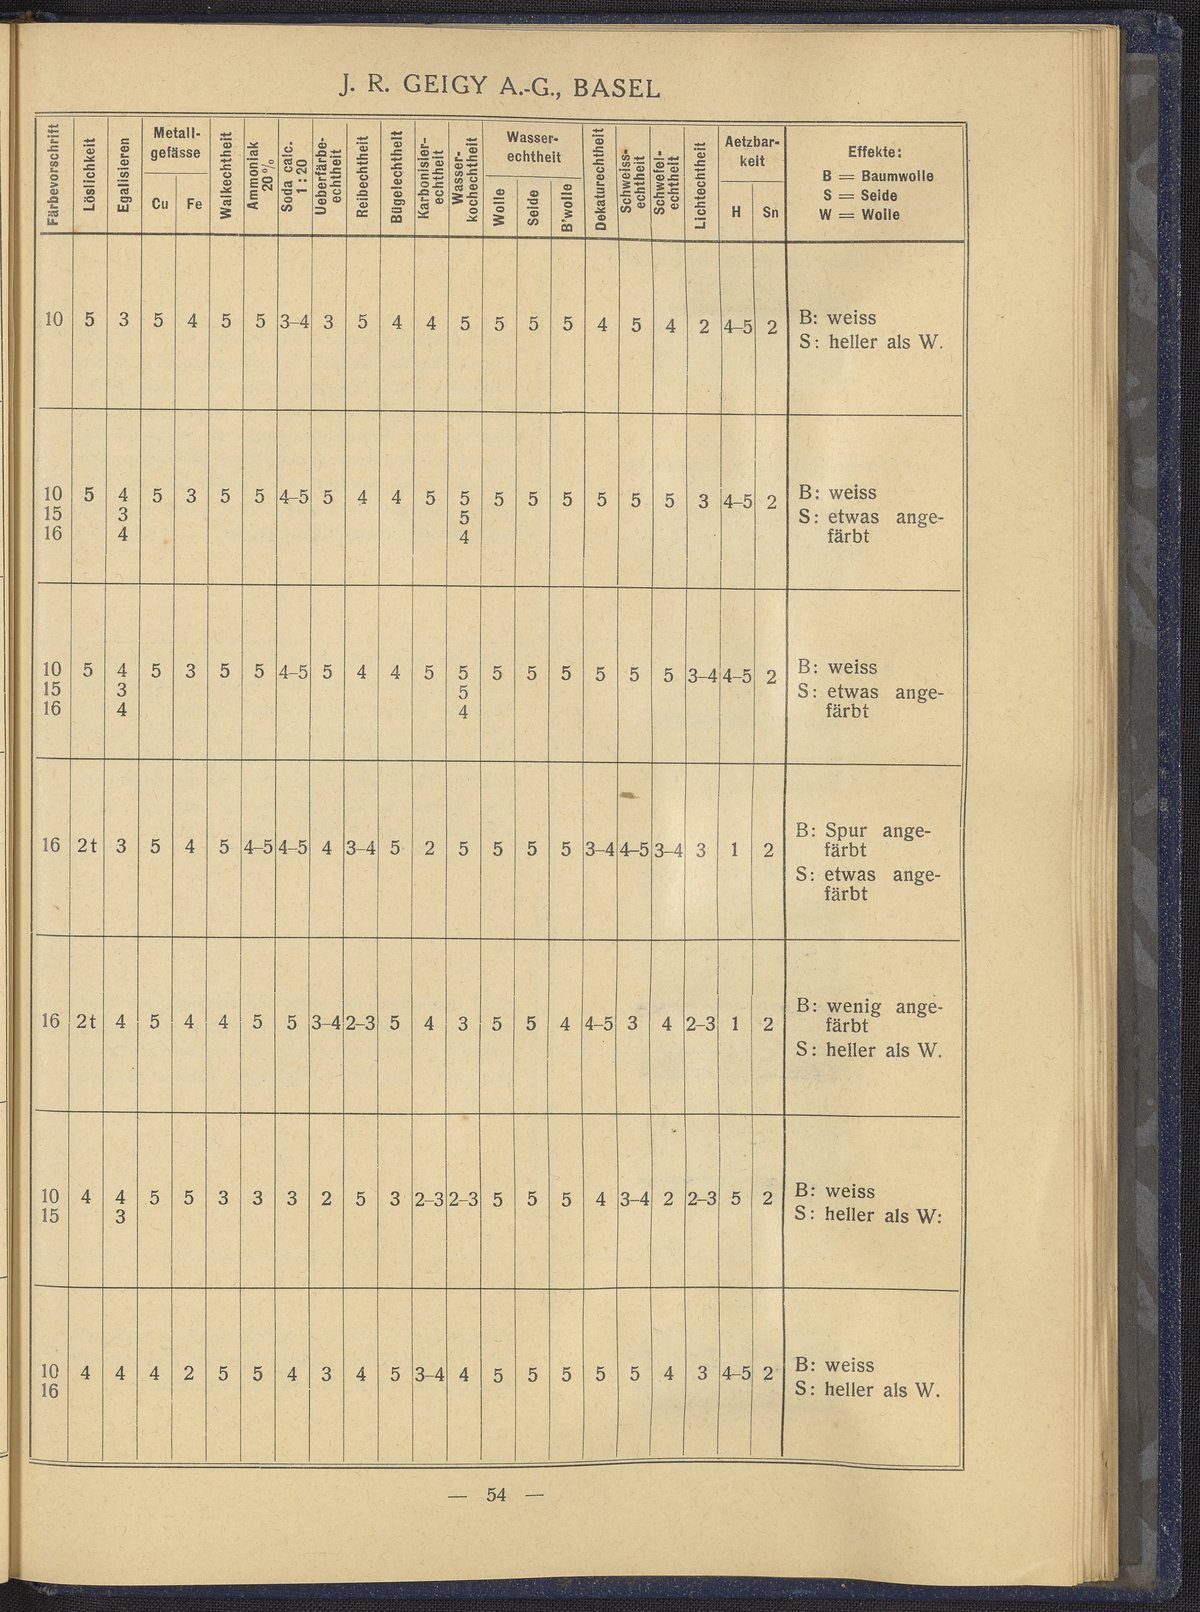 J. R. GEIGY A.-G., BASEL
Färbevorschrift | Löslichkeit | Egalisieren | Metall-gefässe Cu | Fe | Walkechtheit | Ammoniak 20 % | Soda calc. 1 : 20 | Ueberfärbe-echtheit | Reibechtheit | Bügelechtheit | Karbonisier-echtheit | Wasser-kochechtheit | Wasser-echtheit Wolle | Seide | B'wolle | Dekaturechtheit | Schweiss-echtheit | Schwefel-echtheit | Lichtechtheit | Aetzbar-keit H | Sn | Effekte:
B = Baumwolle
S = Seide
W = Wolle
10 5 3 5 4 5 5 3–4 3 5 4 4 5 5 5 5 4 5 4 2 4–5 2 B: weiss
S: heller als W.
10 5 4 5 3 5 5 4–5 5 4 4 5 5 5 5 5 5 5 5 3 4–5 2 B: weiss
15 3 5 S: etwas ange-
16 4 4 färbt
10 5 4 5 3 5 5 4–5 5 4 4 5 5 5 5 5 5 5 5 3–4 4–5 2 B: weiss
15 3 5 S: etwas ange-
16 4 4 färbt
16 2t 3 5 4 5 4–5 4–5 4 3–4 5 2 5 5 5 5 3–4 4–5 3–4 3 1 2 B: Spur ange-
färbt
S: etwas ange-
färbt
16 2t 4 5 4 4 5 5 3–4 2–3 5 4 3 5 5 4 4–5 3 4 2–3 1 2 B: wenig ange-
färbt
S: heller als W.
10 4 4 5 5 3 3 3 2 5 3 2–3 2–3 5 5 5 4 3–4 2 2–3 5 2 B: weiss
15 3 S: heller als W:
10 4 4 4 2 5 5 4 3 4 5 3–4 4 5 5 5 5 5 4 3 4–5 2 B: weiss
16 S: heller als W.
— 54 —